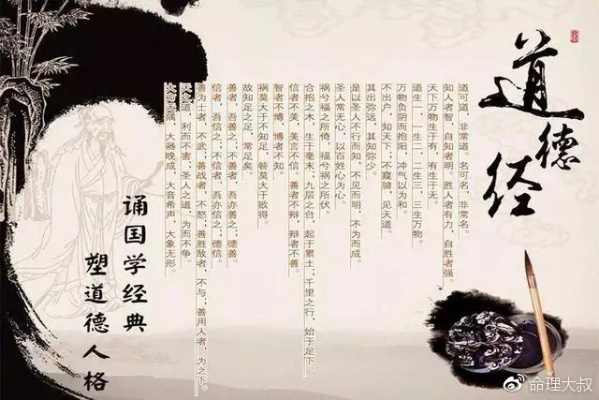 道德经
道可道，非常道。名可名，非常名。
知人者智，自知者明。胜人者有力，自胜者强。
天下万物生于有，有生于无。
道生一，一生二，二生三，三生万物。
万物负阴而抱阳，冲气以为和。
不出户，知天下；不窥牖，见天道。
其出弥远，其知弥少。
是以圣人不行而知，不见而明，不为而成。
圣人常无心，以百姓心为心。
祸兮福之所倚，福兮祸之所伏。
合抱之木，生于毫末；九层之台，起于累土；千里之行，始于足下。
信者不美，美言不信。善者不辩，辩者不善。
智者不博，博者不知。
祸莫大于不知足，咎莫大于欲得。
故知足之足，常足矣。
善者，吾善之；不善者，吾亦善之；德善。
信者，吾信之；不信者，吾亦信之；德信。
善为士者，不武；善战者，不怒；善胜敌者，不与；善用人者，为之下。
天之道，利而不害；圣人之道，为而不争。
大方无隅，大器晚成，大音希声，大象无形。
诵国学经典
塑道德人格
命理大叔